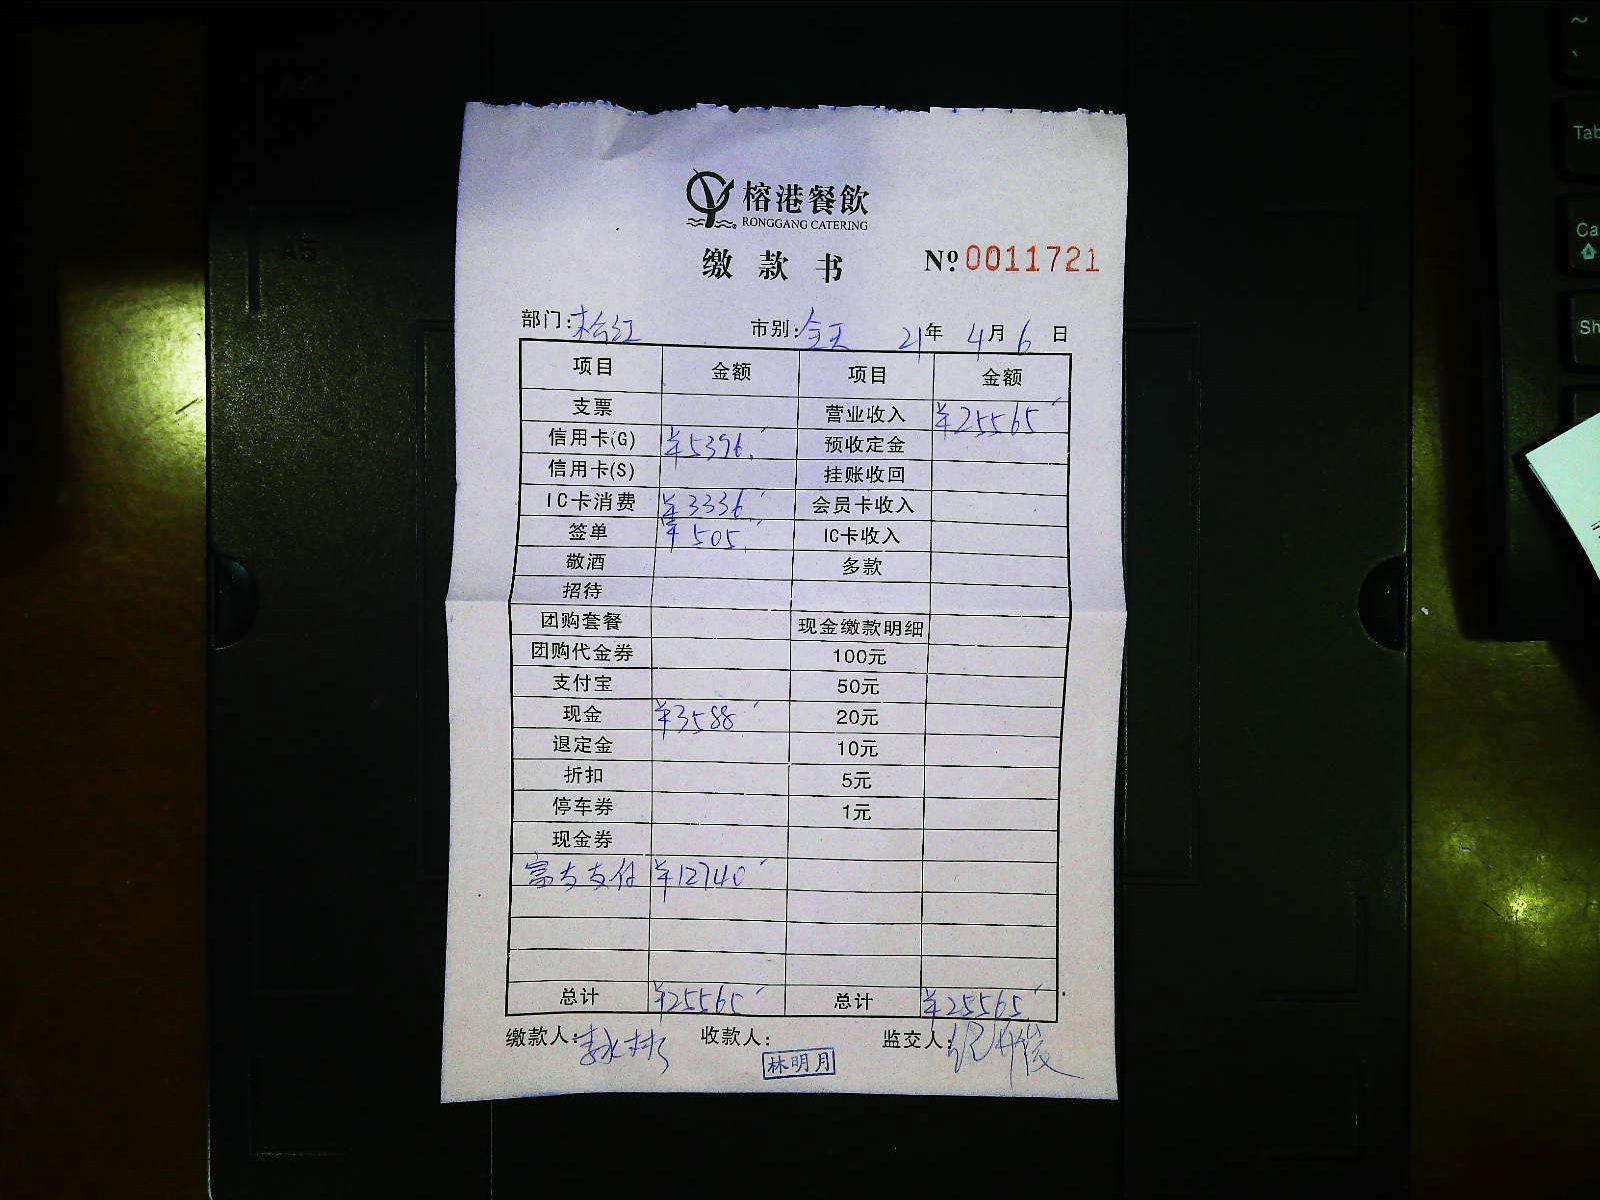 榕港餐飲
RONGGANG CATERING
缴款书 Nº 0011721
部门:松江 市别:全天 21年 4月 6日
项目 金额 项目 金额
支票 营业收入 ¥25565
信用卡(G) ¥5396 预收定金
信用卡(S) 挂账收回
IC卡消费 ¥3336 会员卡收入
签单 ¥505 IC卡收入
敬酒 多款
招待
团购套餐 现金缴款明细
团购代金券 100元
支付宝 50元
现金 ¥3588 20元
退定金 10元
折扣 5元
停车券 1元
现金券
富友支付 ¥12740
总计 ¥25565 总计 ¥25565
缴款人: 收款人: 林明月 监交人:
A5
~
`
Tab
Ca
Sh